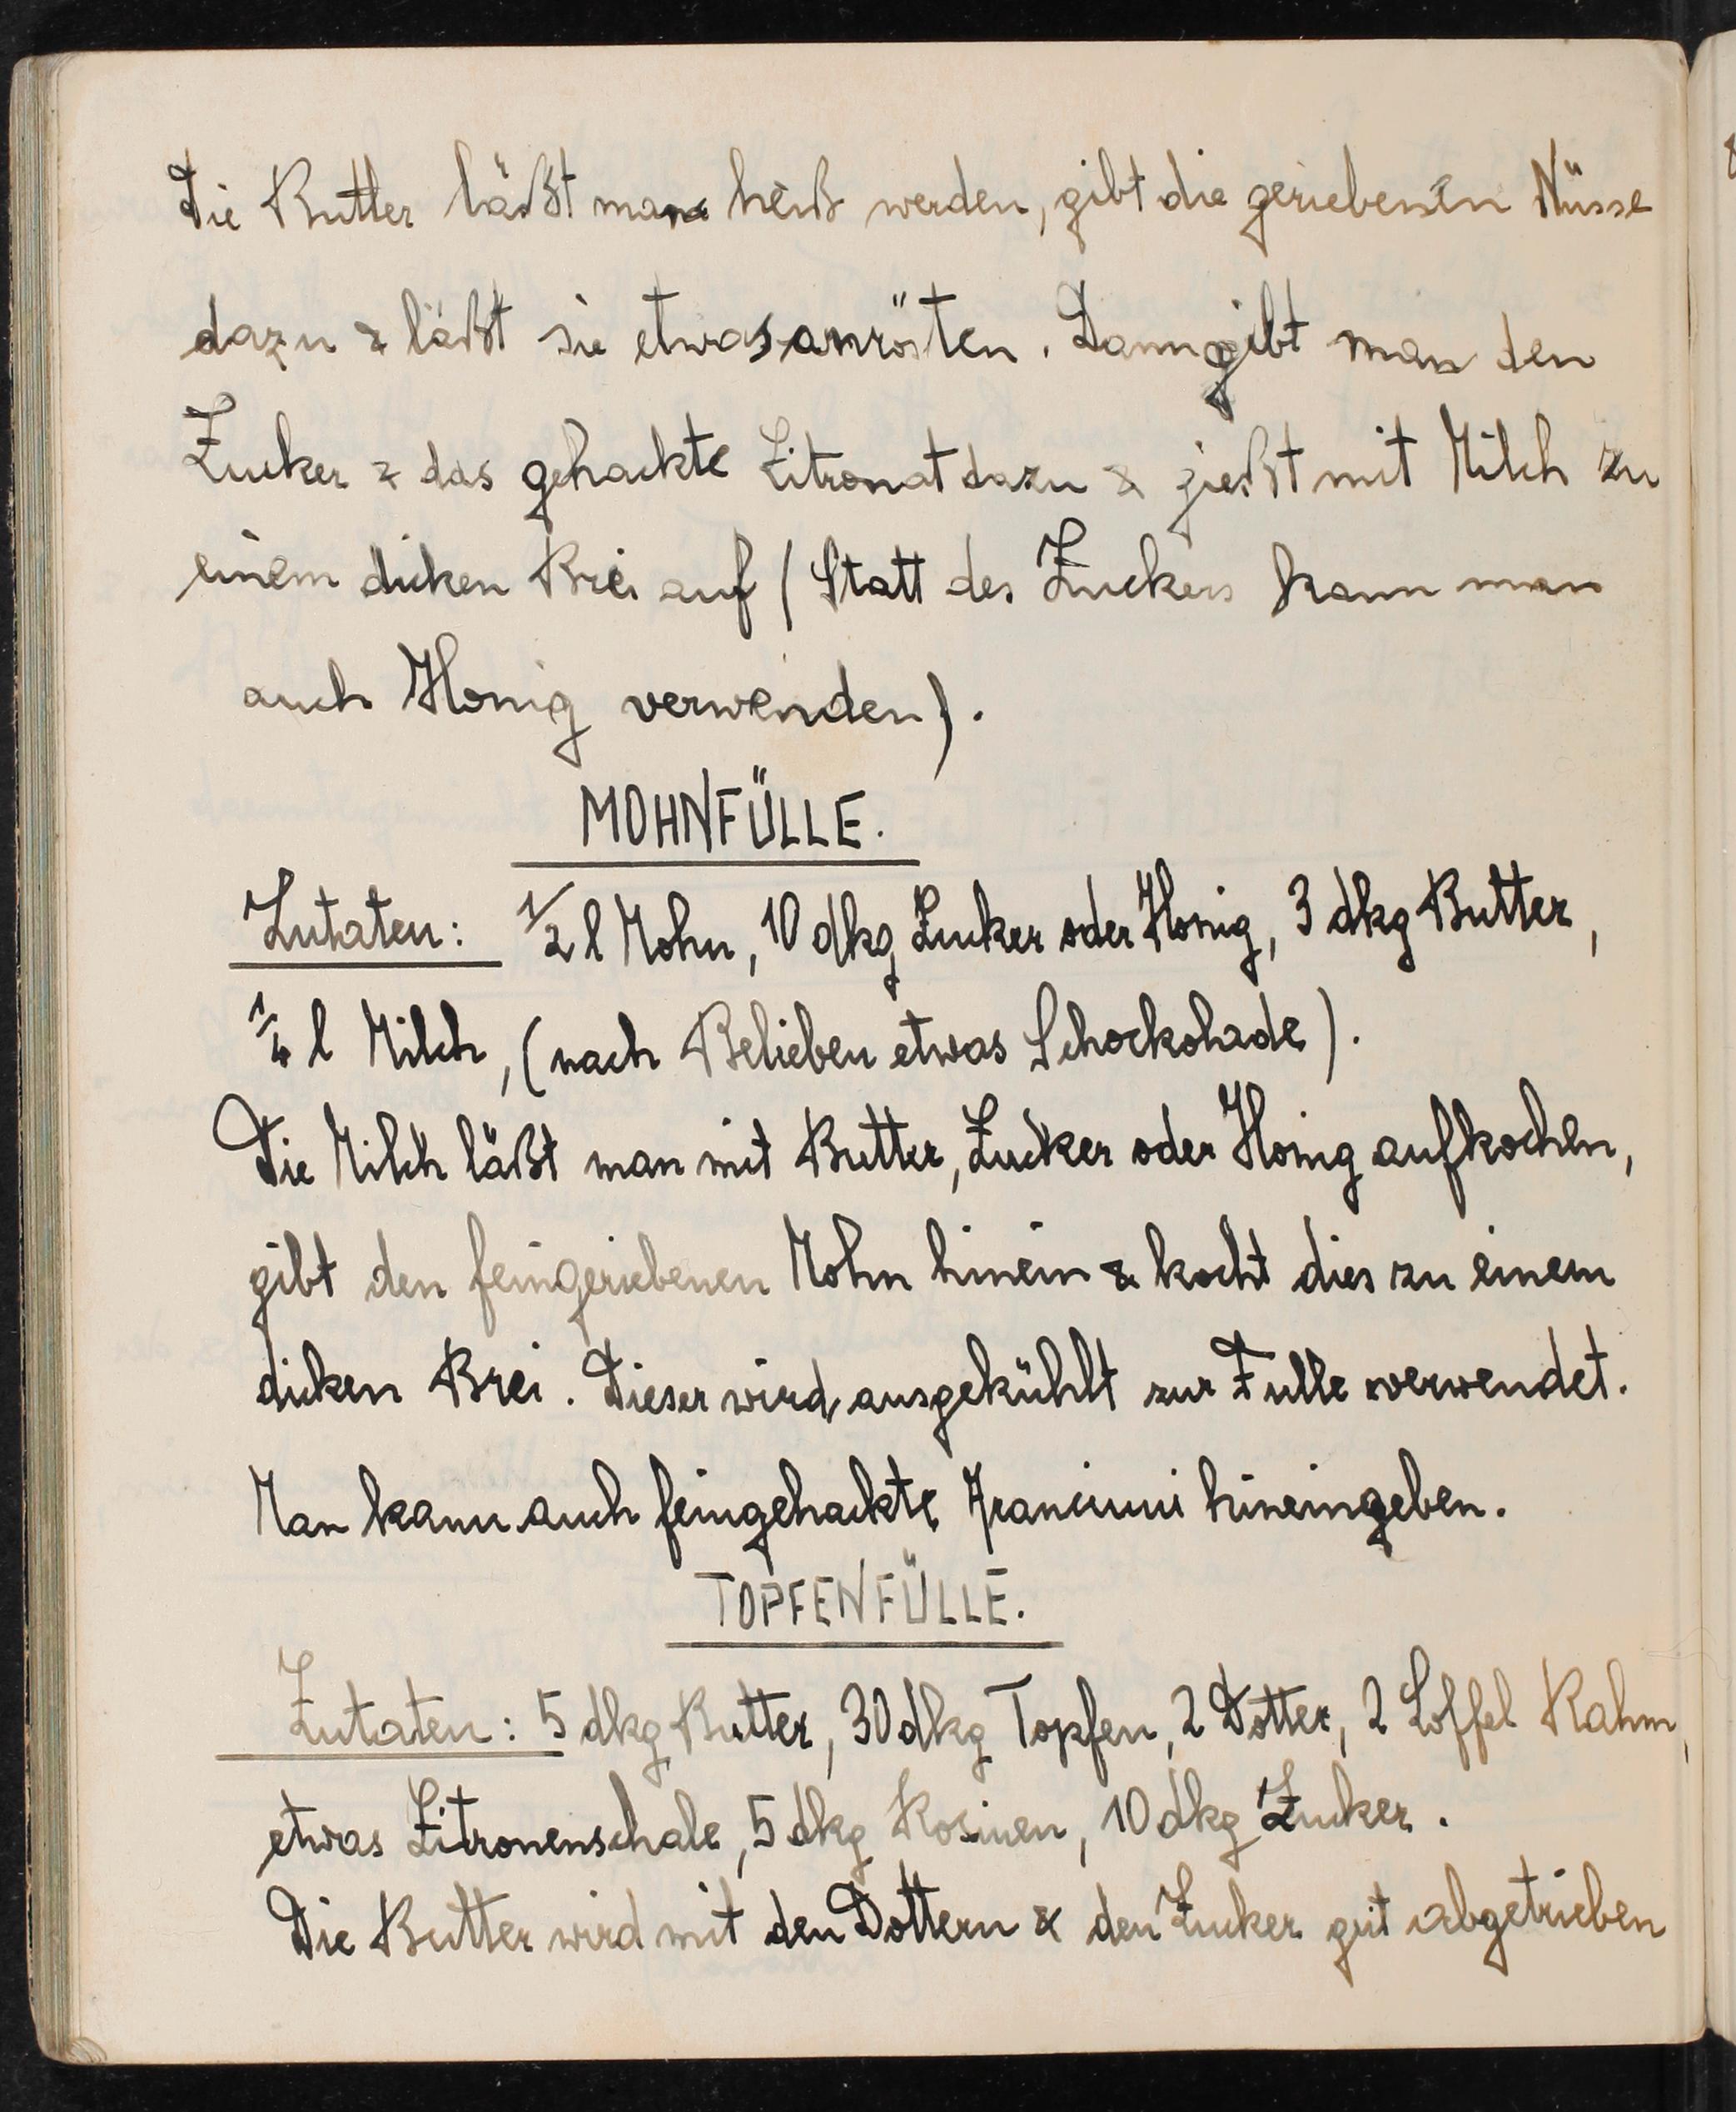 Die Butter läßt man heiß werden, gibt die geriebenen Nüsse
dazu & läßt sie etwas anrösten. Dann gibt man den
Zucker & das gehackte Zitronat dazu & gießt mit Milch zu
einem dicken Brei auf (Statt des Zuckers kann man
auch Honig verwenden).
MOHNFÜLLE.
Zutaten: 1/2 l Mohn, 10 dkg Zucker oder Honig, 3 dkg Butter,
1/4 l Milch, (nach Belieben etwas Schockolade).
Die Milch läßt man mit Butter, Zucker oder Honig aufkochen,
gibt den feingeriebenen Mohn hinein & kocht dies zu einem
dicken Brei. Dieser wird ausgekühlt zur Fülle verwendet.
Man kann auch feingehackte Arancinni hineingeben.
TOPFENFÜLLE.
Zutaten: 5 dkg Butter, 30 dkg Topfen, 2 Dotter, 2 Löffel Rahm,
etwas Zitronenschale, 5 dkg Rosinen, 10 dkg Zucker.
Die Butter wird mit den Dottern & den Zucker gut abgetrieben